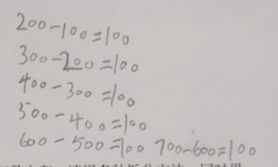 200-100=100
300-200=100
400-300=100
500-400=100
600-500=100 700-600=100